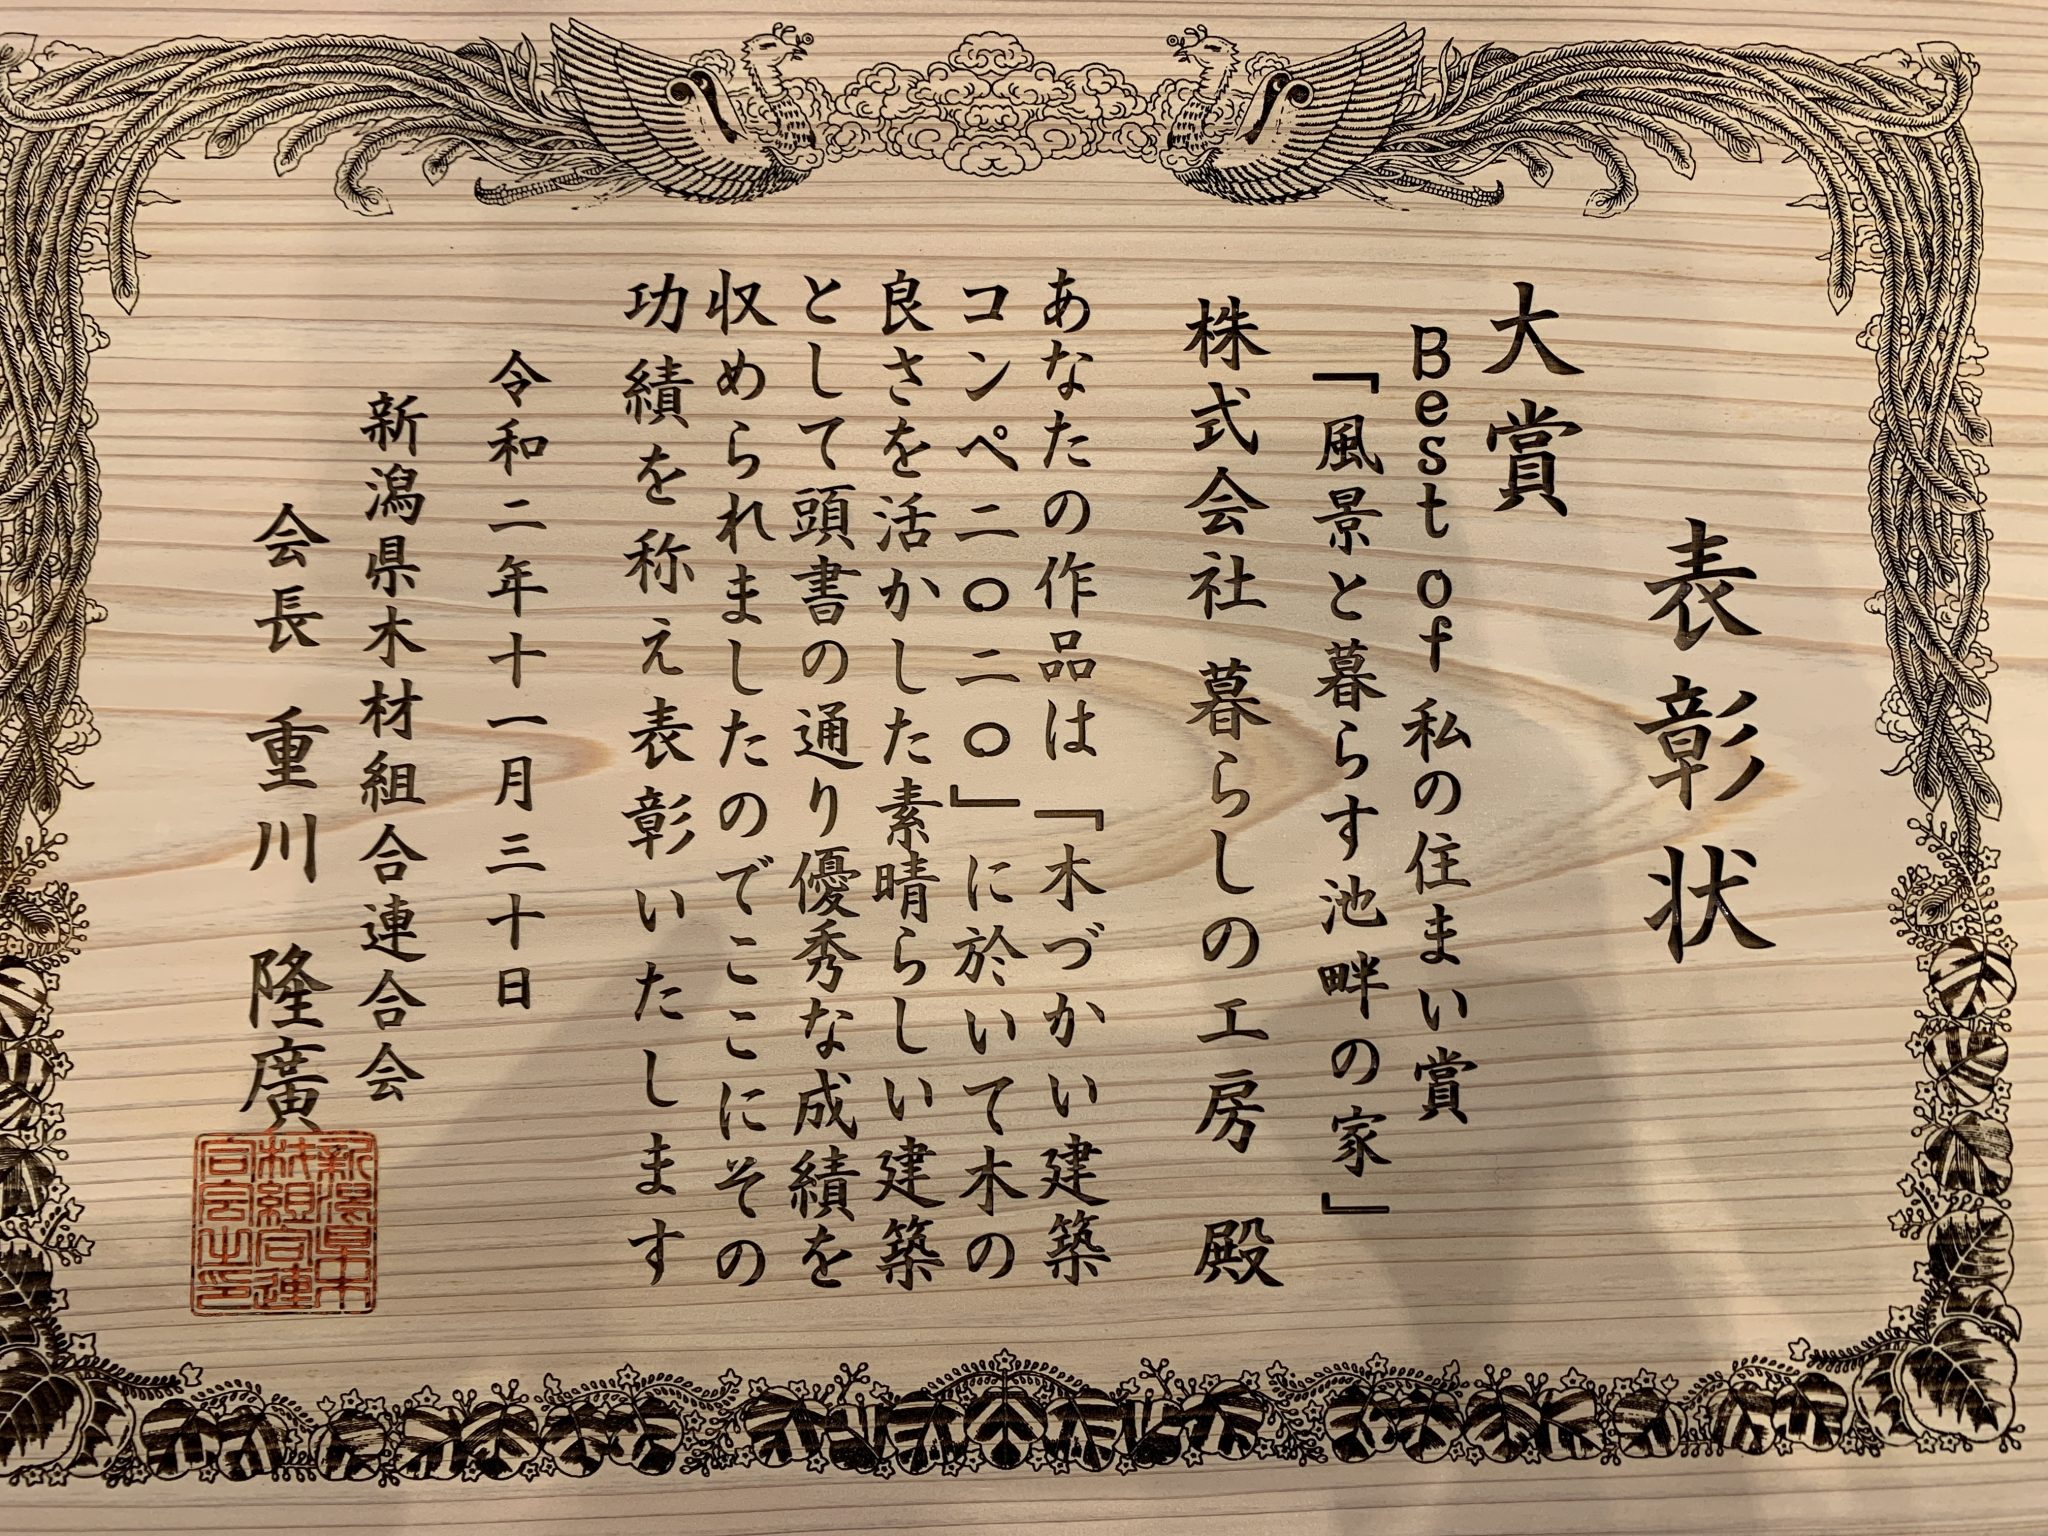 表彰状
大賞
Best of 私の住まい賞
「風景と暮らす池畔の家」
株式会社 暮らしの工房 殿
あなたの作品は「木づかい建築
コンペ二〇二〇」に於いて木の
良さを活かした素晴らしい建築
として頭書の通り優秀な成績を
収められましたのでここにその
功績を称え表彰いたします
令和二年十一月三十日
新潟県木材組合連合会
会長 重川 隆廣
新潟県木
材組合連
合会之印